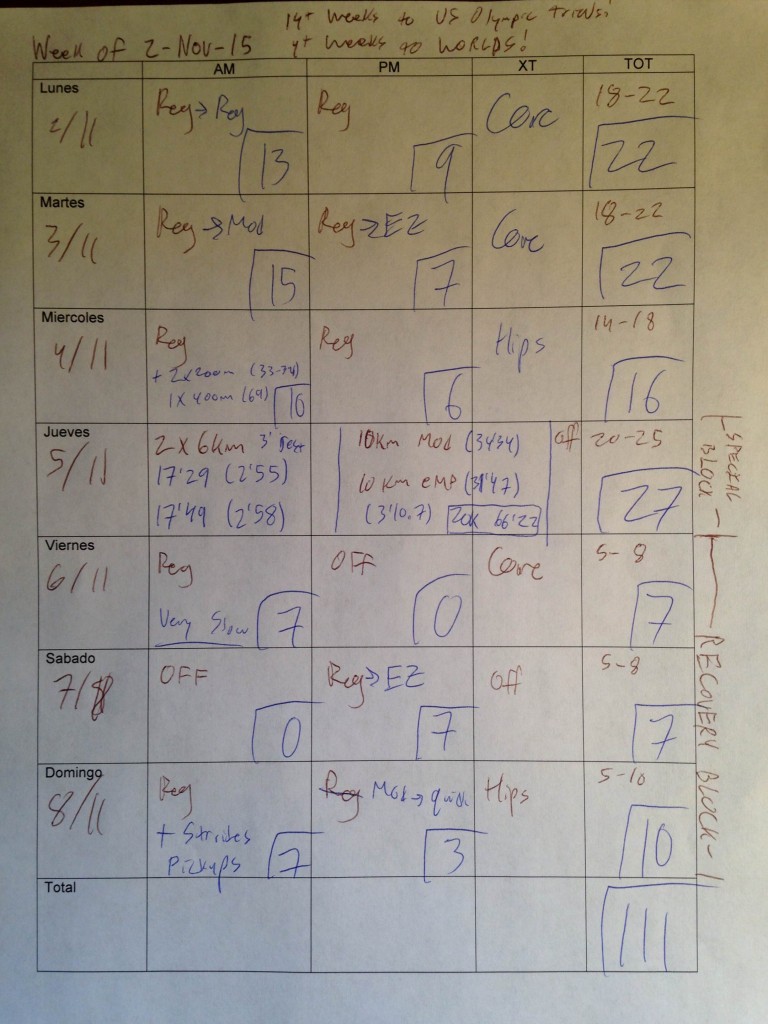 14+ weeks to US Olympic trials!
Week of 2-Nov-15
4+ weeks to WORLDS!
AM PM XT TOT
Lunes
2/11
Reg → Reg
13
Reg
9
Core
18-22
22
Martes
3/11
Reg → Mod
15
Reg → EZ
7
Core
18-22
22
Miercoles
4/11
Reg
+ 2x200m (33-34)
1x400m (69)
10
Reg
6
Hips
14-18
16
Jueves
5/11
2 x 6km 3' rest
17'29 (2'55)
17'49 (2'58)
10km Mod (34'34)
10km eMP (31'47)
(3'10.7) 20K 66'22
off
20-25
27
SPECIAL
BLOCK
Viernes
6/11
Reg
Very Slow
7
OFF
0
Core
5-8
7
Sabado
7/11
OFF
0
Reg → EZ
7
Off
5-8
7
Domingo
8/11
Reg
+ Strides
Pickups
7
Reg Mod → quick
3
Hips
5-10
10
RECOVERY BLOCK
Total
111